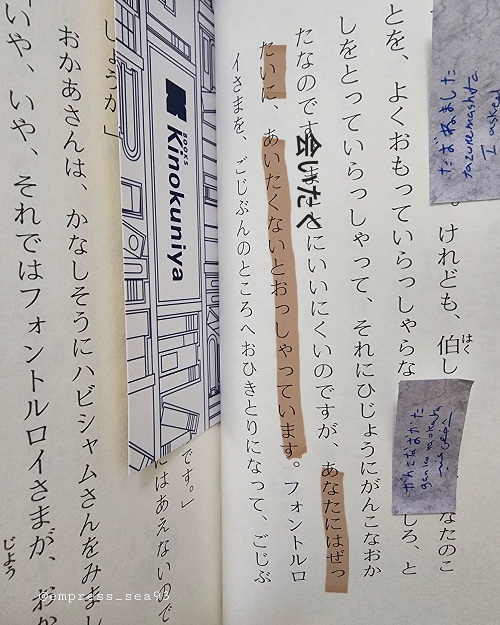 たずねました
tazunemashita
I asked
。けれども、伯し
はく
なたのこ
とを、よくおもっていらっしゃらな
しろ、と
がんこなおかた
ganko na okata
しをとっていらっしゃって、それにひじょうにがんこなおか
たなのです
会いたく
にいいにくいのですが、あなたにはぜっ
たいに、あいたくないとおっしゃっています。フォントルロ
イさまを、ごじぶんのところへおひきとりになって、ごじぶ
です。」
にはあえないので
BOOKS
Kinokuniya
しょうか」
おかあさんは、かなしそうにハビシャムさんをみまし
じょう
いや、いや、それではフォントルロイさまが、おか
@empress_sea93